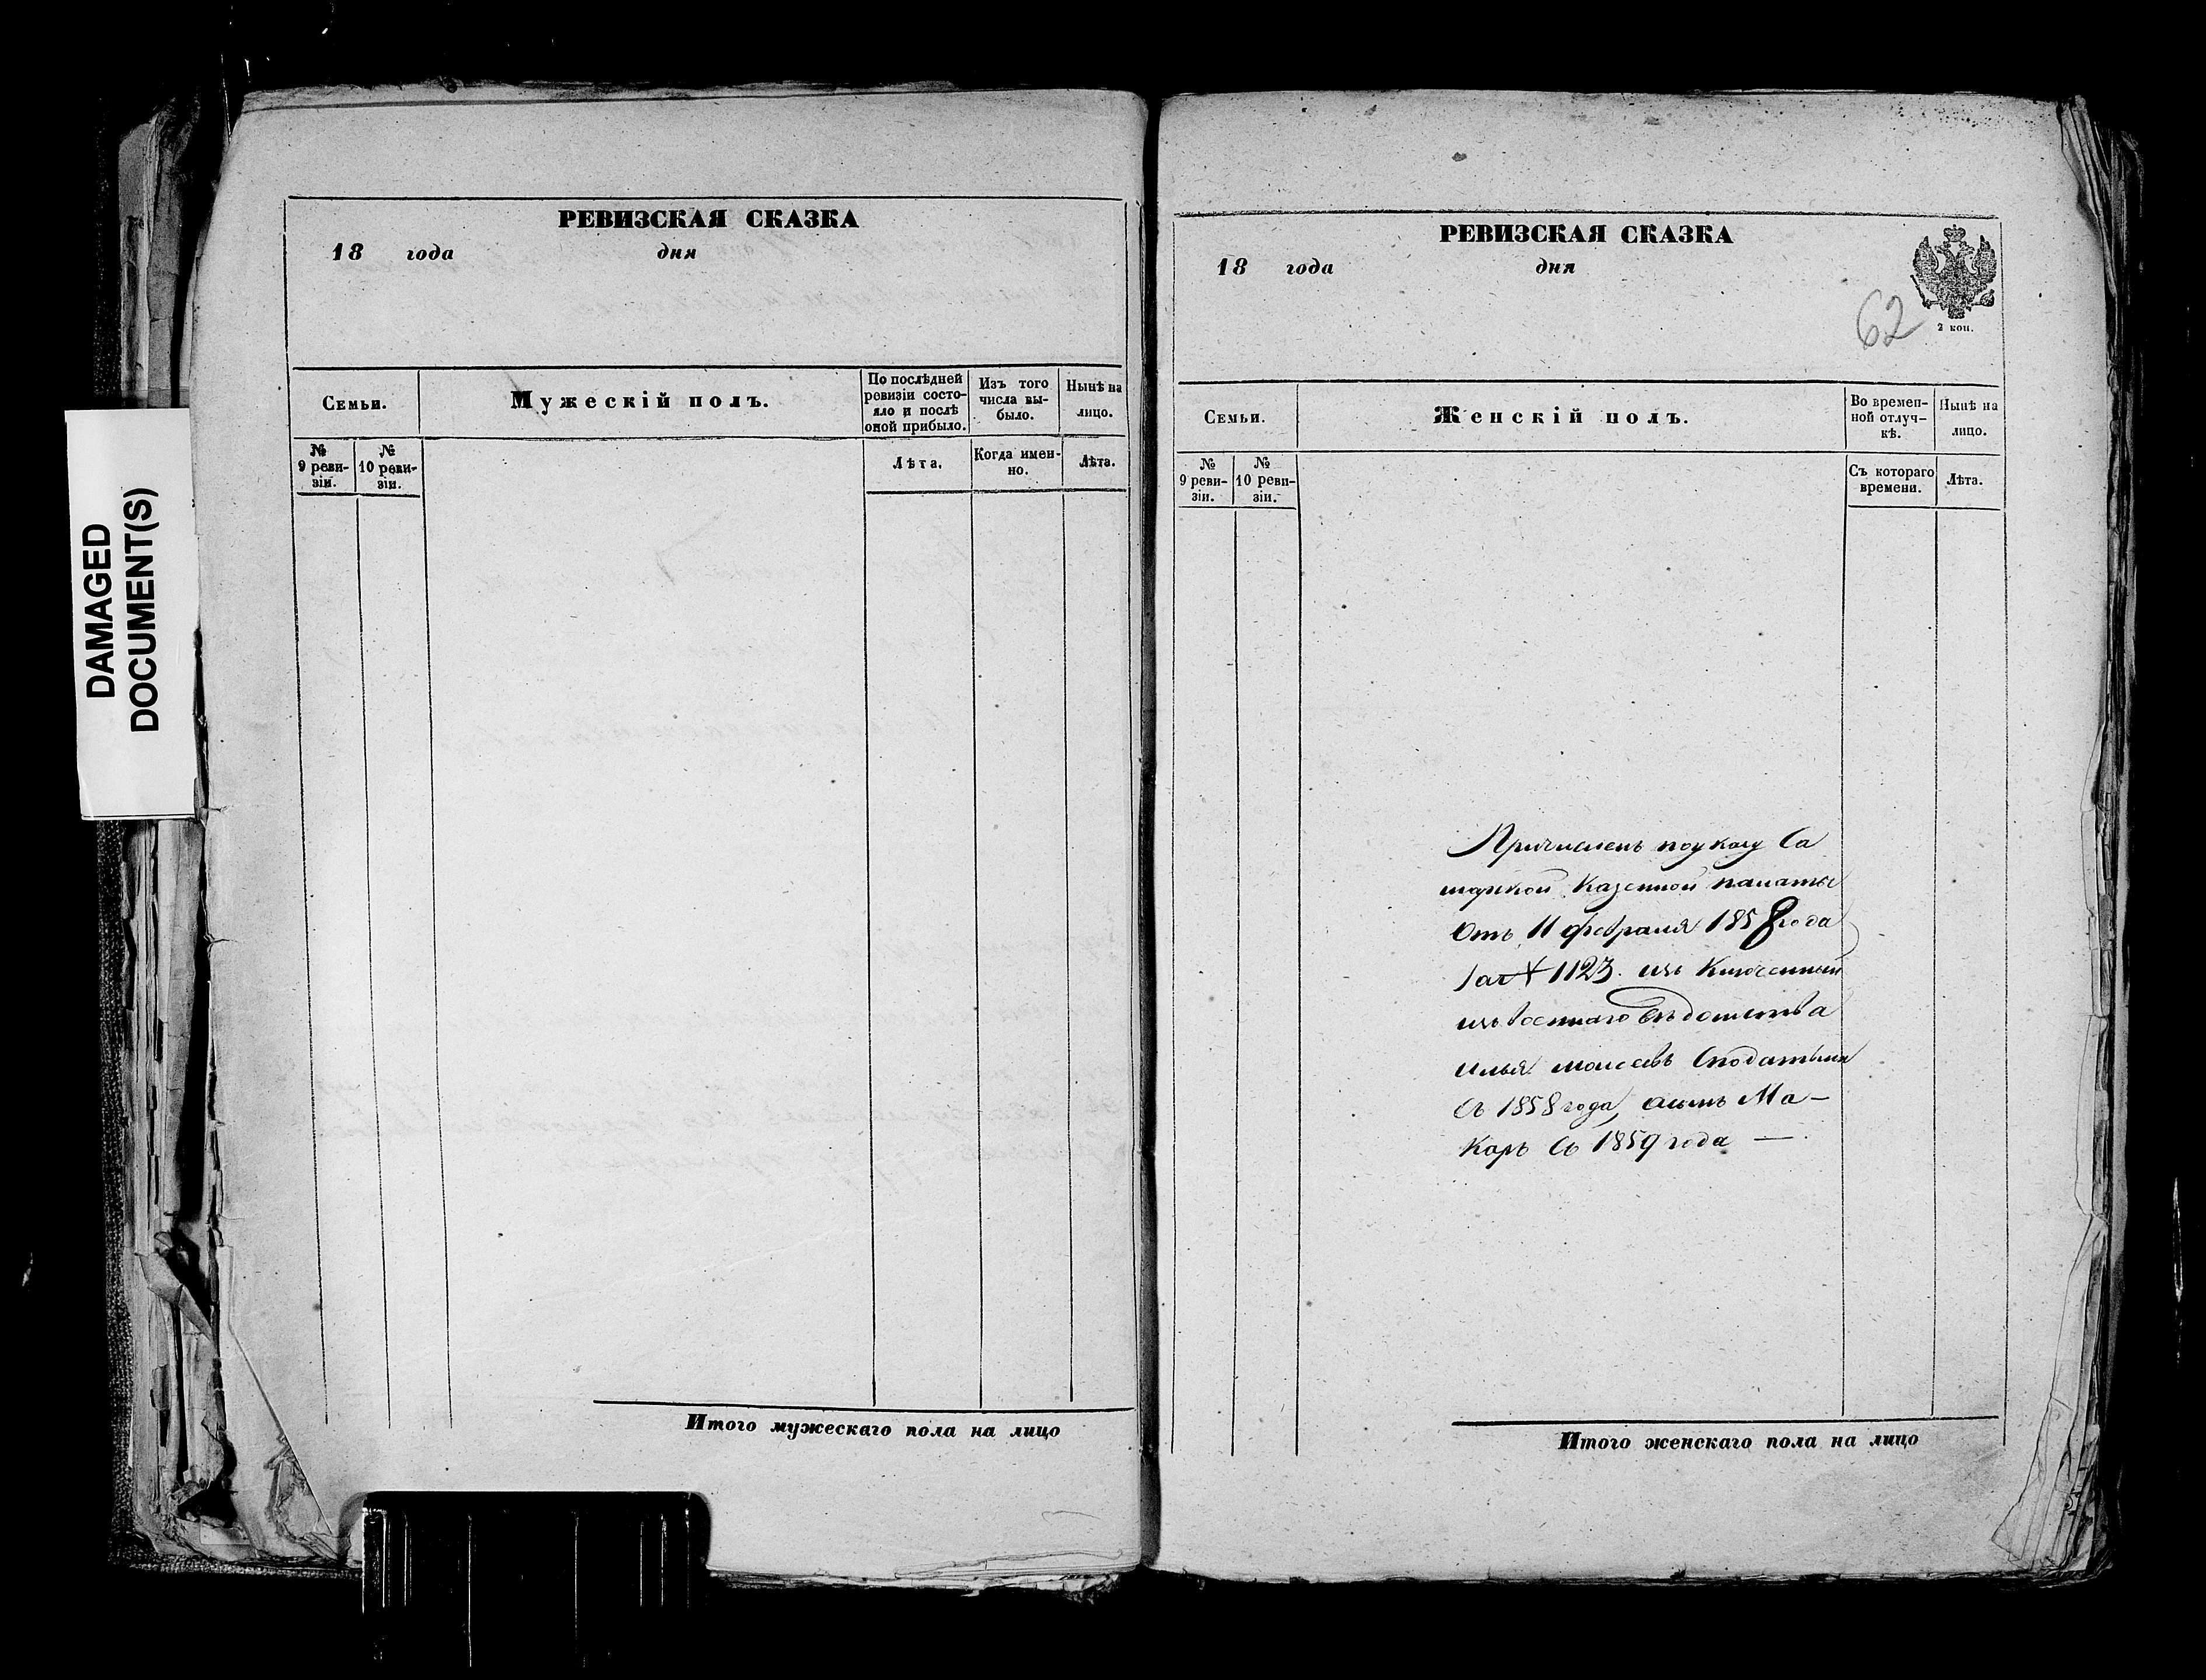 DAMAGED
DOCUMENT(S)
РЕВИЗСКАЯ СКАЗКА
18 года дня
Семьи.
Мужескій полъ.
По послѣдней
ревизіи состо-
яло и послѣ
оной прибыло.
Изъ того
числа вы-
было.
Нынѣ на
лицо.
№
9 реви-
зіи.
№
10 реви-
зіи.
Лѣта.
Когда имен-
но.
Лѣта.
Итого мужескаго пола на лицо
РЕВИЗСКАЯ СКАЗКА
18 года дня
62
2 коп.
Семьи.
Женскій полъ.
Во времен-
ной отлуч-
кѣ.
Нынѣ на
лицо.
№
9 реви-
зіи.
№
10 реви-
зіи.
Съ котораго
времени.
Лѣта.
Причисленъ поуказу Са
марской Казенной палаты
Отъ 11 февраля 1858 года
1123. изъ
изъ военнаго Вѣдомства
илья моисеевъ
Съ 1858 года, асынъ Ма-
каръ Съ 1859 года —
Итого женскаго пола на лицо